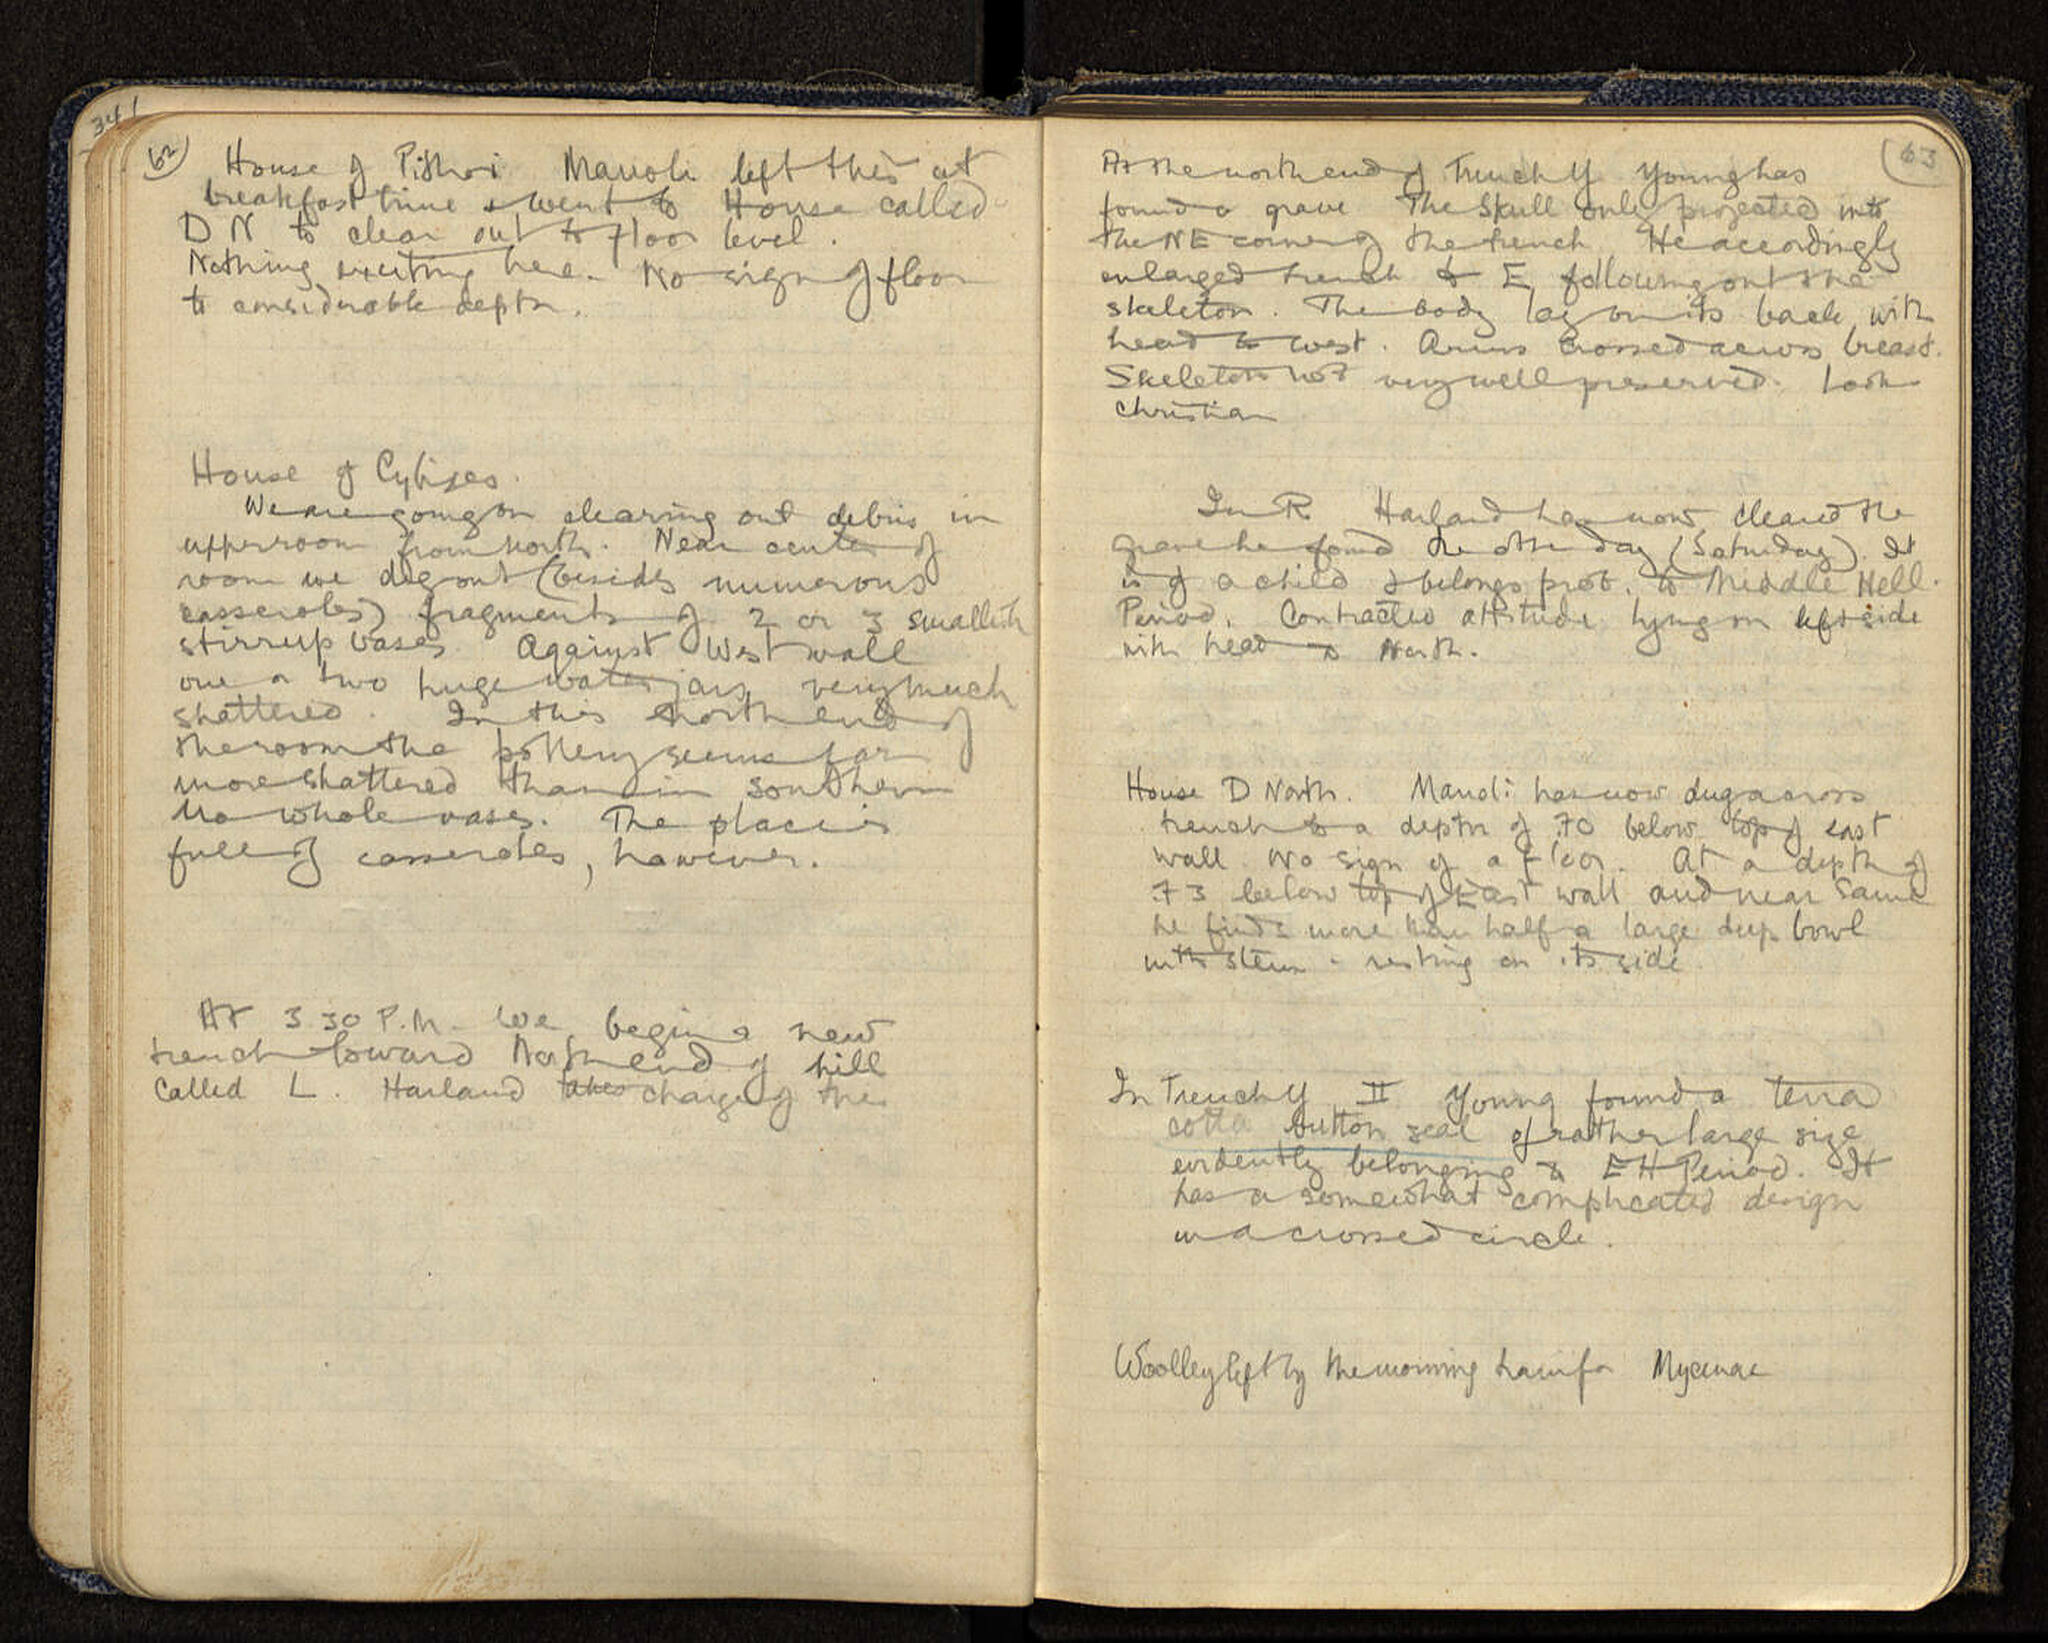 341
62
House of Pithoi Manoli left this at
breakfast time & went to House called
D N to clear out to floor level.
Nothing exciting here. No sign of floor
to considerable depth.
House of Cylixes.
We are going on clearing out debris in
upper room from North. Near center of
room we dig out (besides numerous
casseroles) fragments of 2 or 3 smallish
stirrup vases Against West wall
one or two huge water jars, very much
shattered. In this north end of
the room the pottery seems far
more shattered than in southern
No whole vases. The place is
full of casseroles, however.
At 3 30 P.M. we begin a new
trench toward North end of hill
called L. Harland takes charge of this
63
At the north end of Trench Y Young has
found a grave The skull only projected into
the NE corner of the trench He accordingly
enlarged trench to E, following out the
skeleton. The body lay on its back, with
head to west. Arms crossed across breast.
Skeleton not very well preserved. Look
Christian
In R Harland has now cleared the
grave he found the other day (Saturday). It
is of a child & belongs prob. to Middle Hell.
Period. Contracted attitude lying on left side
with head to North.
House D North. Manoli has now dug across
trench to a depth of .70 below top of east
wall No sign of a floor. At a depth of
.73 below top of East wall and near same
he finds more than half a large deep bowl
with stem - resting on its side
In Trench Y II Young found a terra
cotta button seal of rather large size
evidently belonging to EH Period. It
has a somewhat complicated design
in a crossed circle.
Woolley left by the morning train for Mycenae